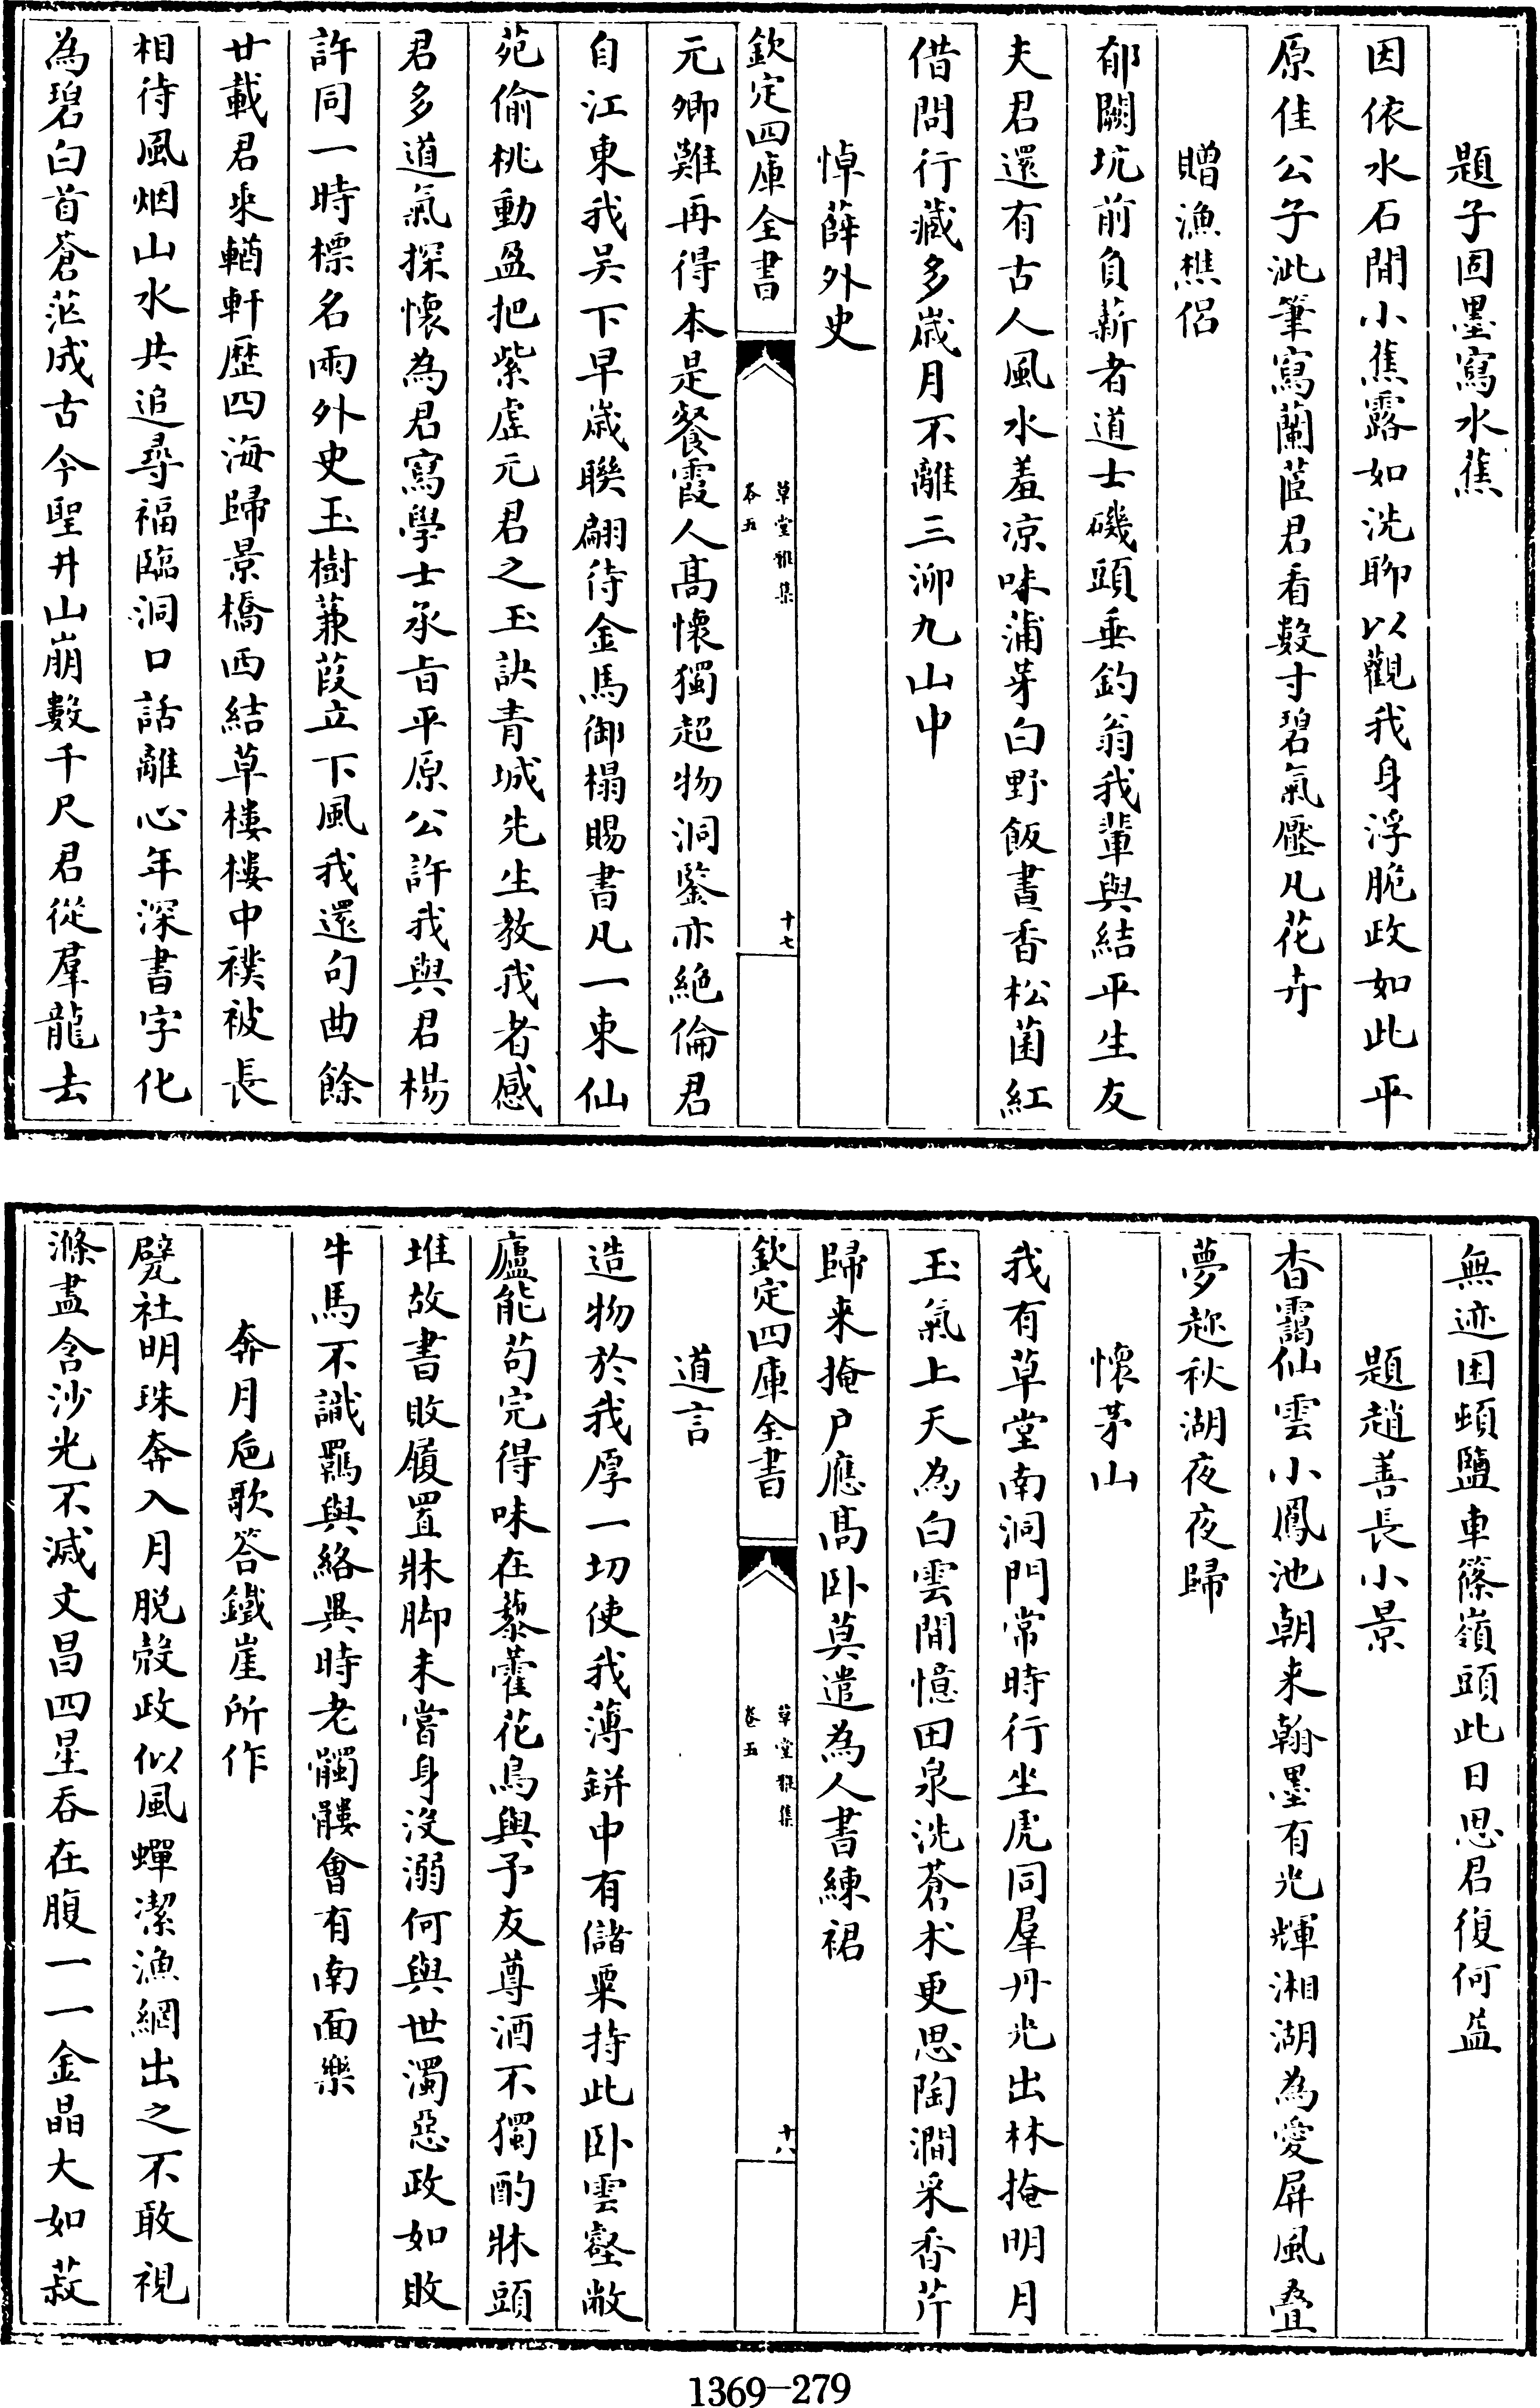 題子固墨寫水蕉
因依水石間小蕉露如洗聊以觀我身浮脆政如此平
原佳公子泚筆寫蘭茝君看數寸碧氣壓凡花卉
贈漁樵侣
郁闕坑前負薪者道士磯頭垂釣翁我輩與結平生友
夫君還有古人風水羞凉味蒲芽白野飯晝香松菌紅
借問行藏多歲月不離三泖九山中
悼薛外史
欽定四庫全書
草堂雅集
卷五
十七
元卿難再得本是餐霞人髙懷獨超物洞鑒亦絶倫君
自江東我吴下早歲聯翩待金馬御榻賜書凡一束仙
苑偷桃動盈把紫虚元君之玉訣青城先生教我者感
君多道氣探懷為君寫學士承㫖平原公許我與君楊
許同一時標名兩外史玉樹蒹葭立下風我還句曲餘
廿載君乘輶軒歴四海歸景橋西結草樓樓中襆被長
相待風烟山水共追尋福臨洞口話離心年深書字化
為碧白首蒼茫成古今聖井山崩數千尺君從羣龍去
無迹困頓鹽車篠嶺頭此日思君復何益
題趙善長小景
杳靄仙雲小鳳池朝来翰墨有光輝湘湖為愛屏風叠
夢趂秋湖夜夜歸
懷茅山
我有草堂南洞門常時行坐虎同羣丹光出林掩明月
玉氣上天為白雲間憶田泉洗蒼术更思陶澗采香芹
歸来掩户應髙卧莫遣為人書練裙
欽定四庫全書
草堂雅集
卷五
十八
道言
造物於我厚一切使我薄缾中有儲粟持此卧雲壑敝
廬能苟完得味在藜藿花鳥與予友尊酒不獨酌牀頭
堆故書敗履置牀脚未嘗身没溺何與世濁惡政如敗
牛馬不識羈與絡異時老髑髏會有南面樂
奔月巵歌答鐵崖所作
甓社明珠奔入月脱殻政似風蟬潔漁網出之不敢視
滌盡含沙光不滅文昌四星吞在腹一一金晶大如菽
1369-279